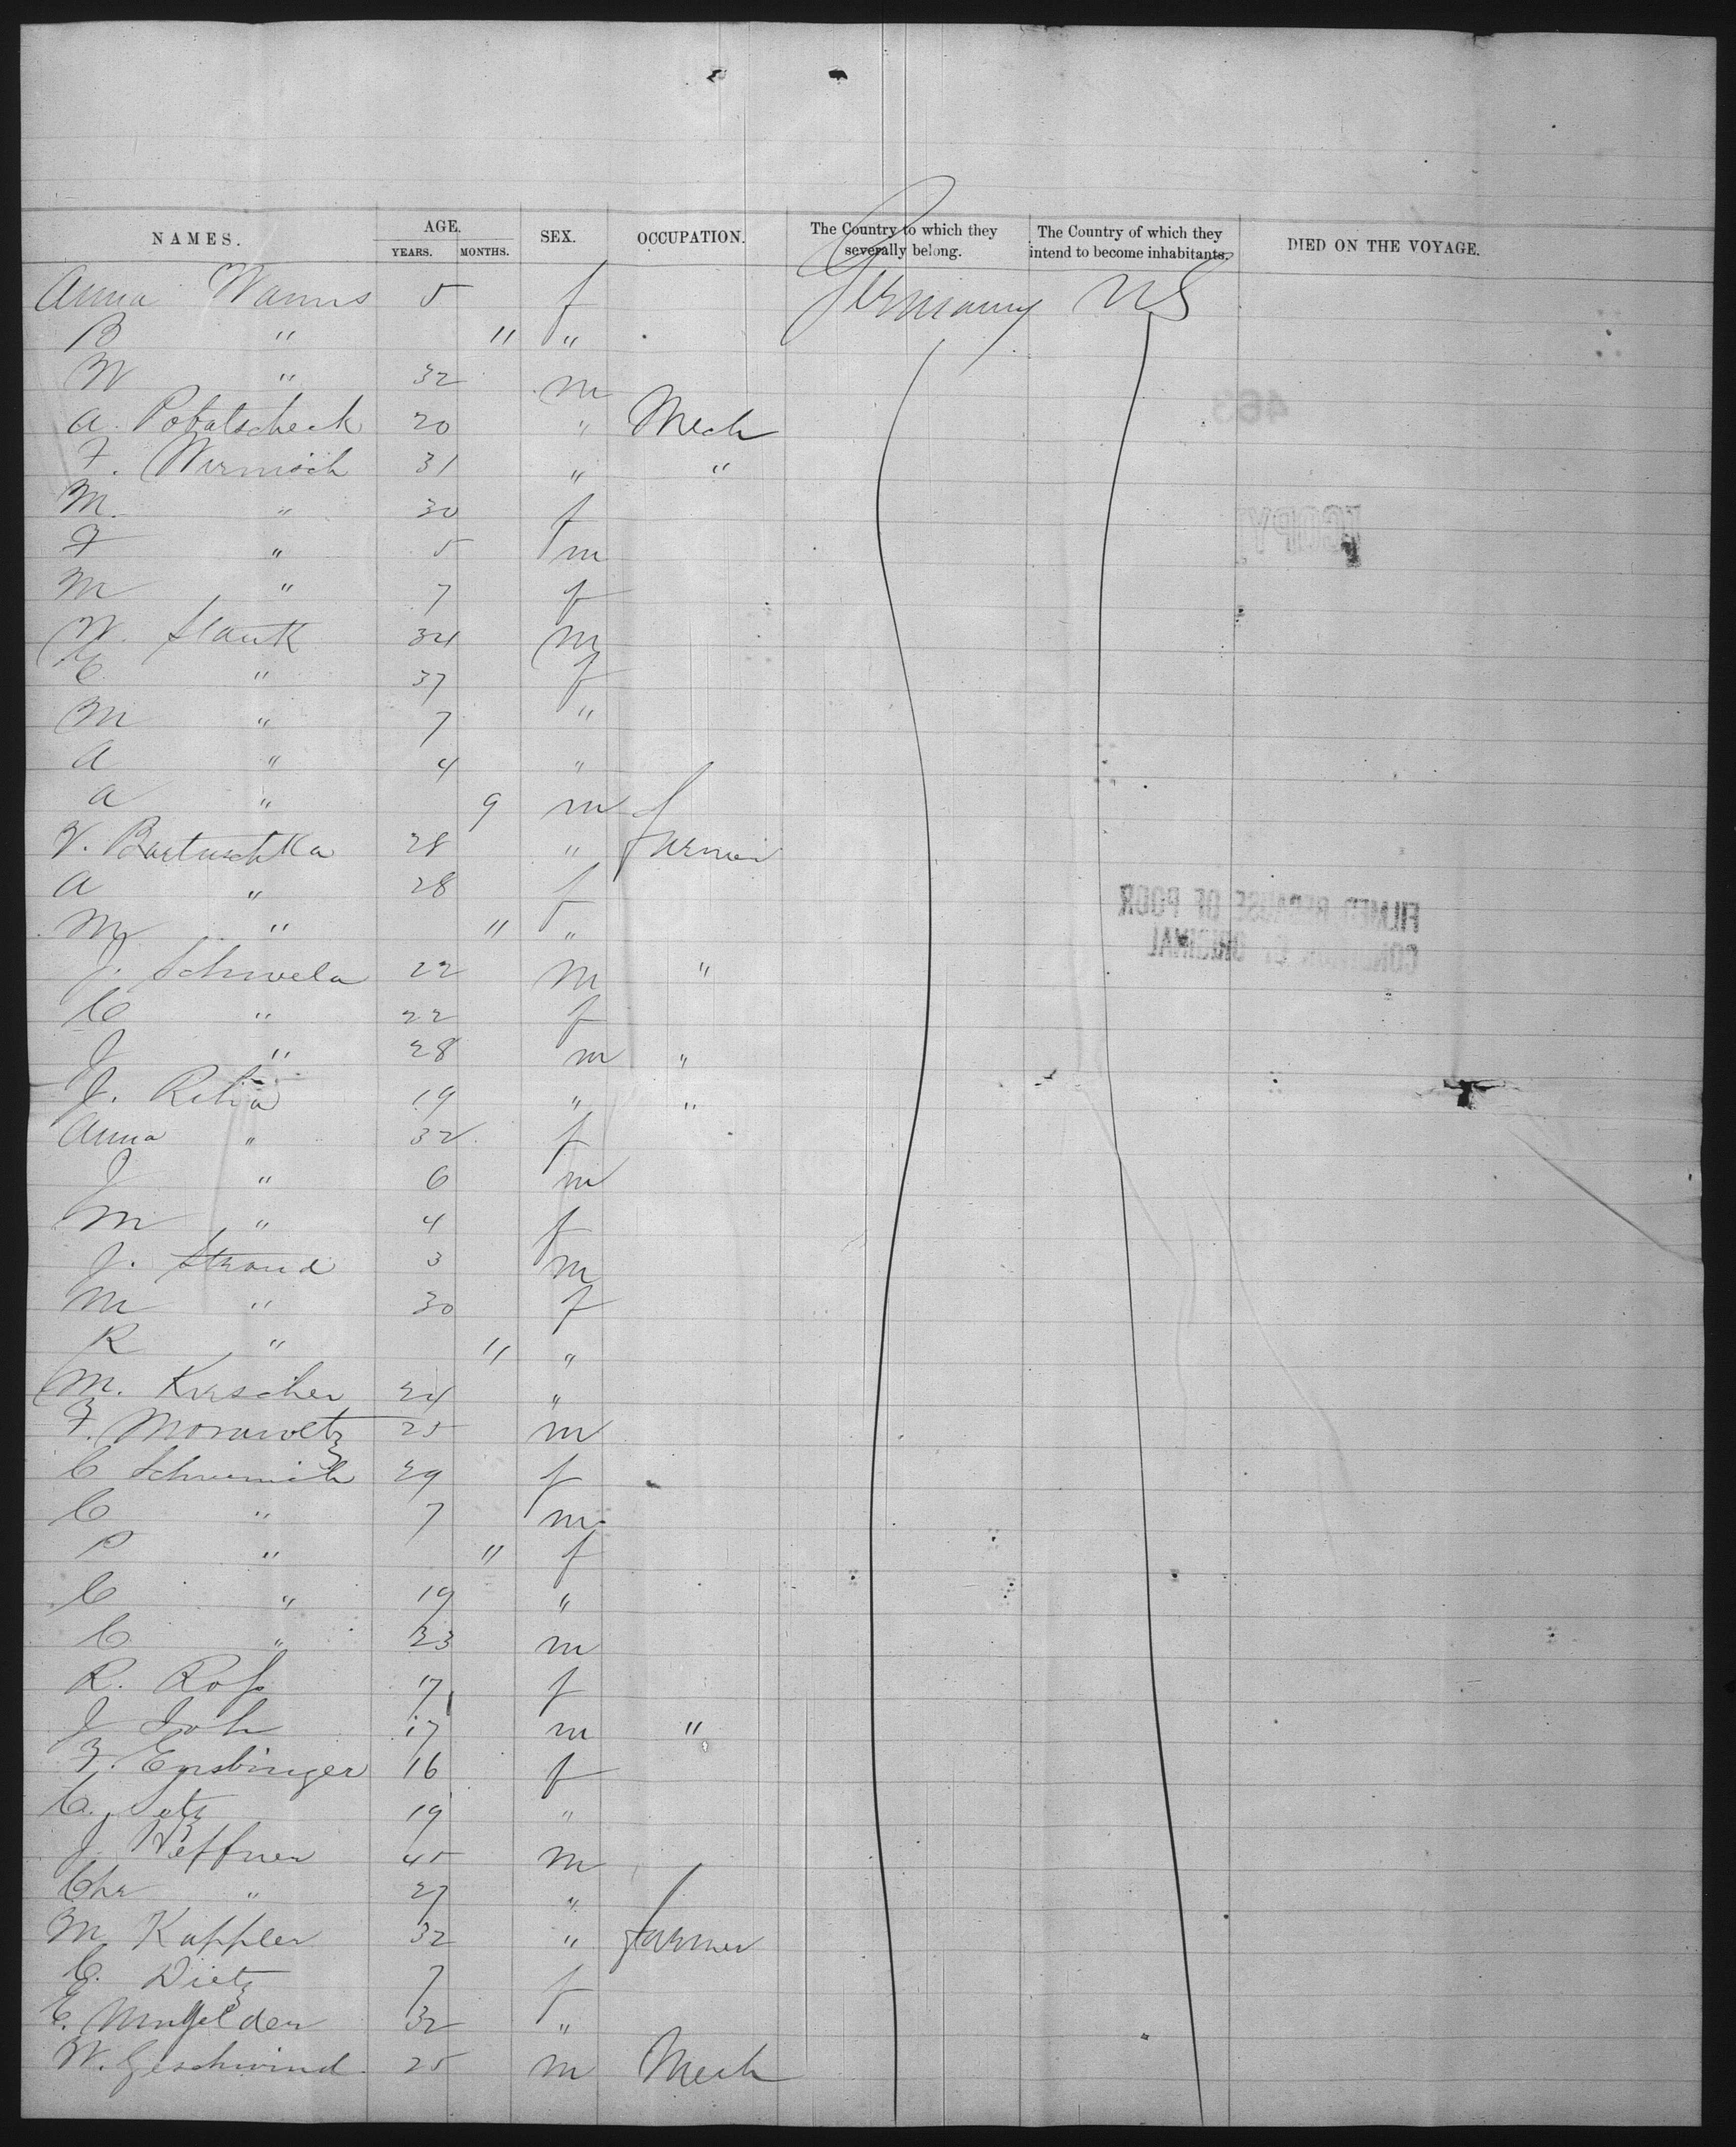 NAMES. AGE. SEX. OCCUPATION. The Country to which they severally belong. The Country of which they intend to become inhabitants. DIED ON THE VOYAGE.
YEARS. MONTHS.
Anna Wanns 5 f Germany US
B " 11 "
W " 32 m
A. Pobatscheck 20 " Mech
F. Wirmisch 31 " "
M. " 30 f
F " 5 m
M " 7 f
W. Slauk 34 m
E. " 37 f
M " 7 "
A " 4 "
A " 9 m
V. Bartuschka 28 " farmer
A " 28 f
M " 11 "
J. Schwela 22 m "
C " 22 f
J " 28 m "
J. Relia 19 " "
Anna " 32 f
J " 6 m
M " 4 f
J. Strand 3 m
M " 30 f
R " 11 "
M. Kirscher 24 "
F. Morawetz 25 m
C 29 f
C " 7 m
P " 11 f
C " 19 "
C " 23 m
R. Roß 17 f
J Joh 17 m "
F. Ensbinger 16 f
C. Lutz 19 "
J. Heffner 45 m
Chr " 27 "
M Kappler 32 " farmer
C. Dietz 7 f
E. 32 "
W. Geschwind 25 m Mech
463
[COPY]
FILMED BECAUSE OF POOR
CONDITION OF ORIGINAL